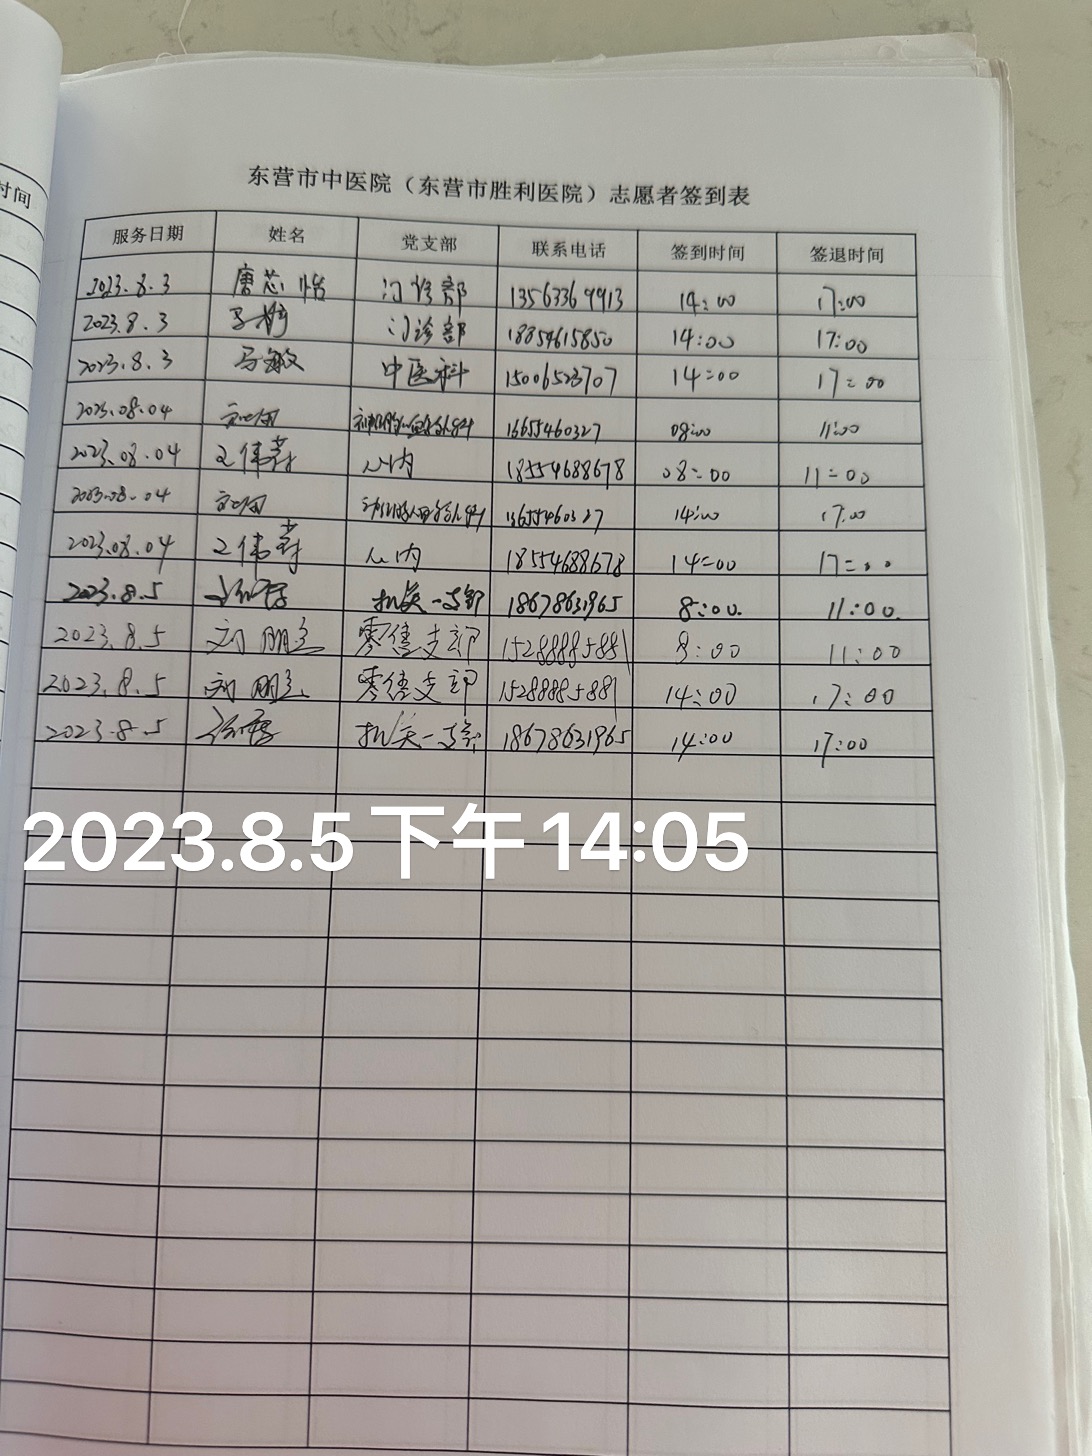 时间
东营市中医院（东营市胜利医院）志愿者签到表
服务日期 姓名 党支部 联系电话 签到时间 签退时间
2023.8.3 唐芯怡 门诊部 13563369913 14:00 17:00
2023.8.3 门诊部 18854615850 14:00 17:00
2023.8.3 马敏 中医科 15006523707 14=00 17=00
2023.08.04 08:00 11:00
2023.08.04 王伟 心内 18554688678 08=00 11=00
2023.08.04 14:00 17:00
2023.08.04 王伟 心内 18554688678 14=00 17=00
2023.8.5 机关一支部 18678631965 8:00. 11:00.
2023.8.5 刘朋 零售支部 15288885881 8:00 11:00
2023.8.5 刘朋 零售支部 15288885881 14:00 17:00
2023.8.5 机关一支部 18678631965 14:00 17:00
2023.8.5下午14:05